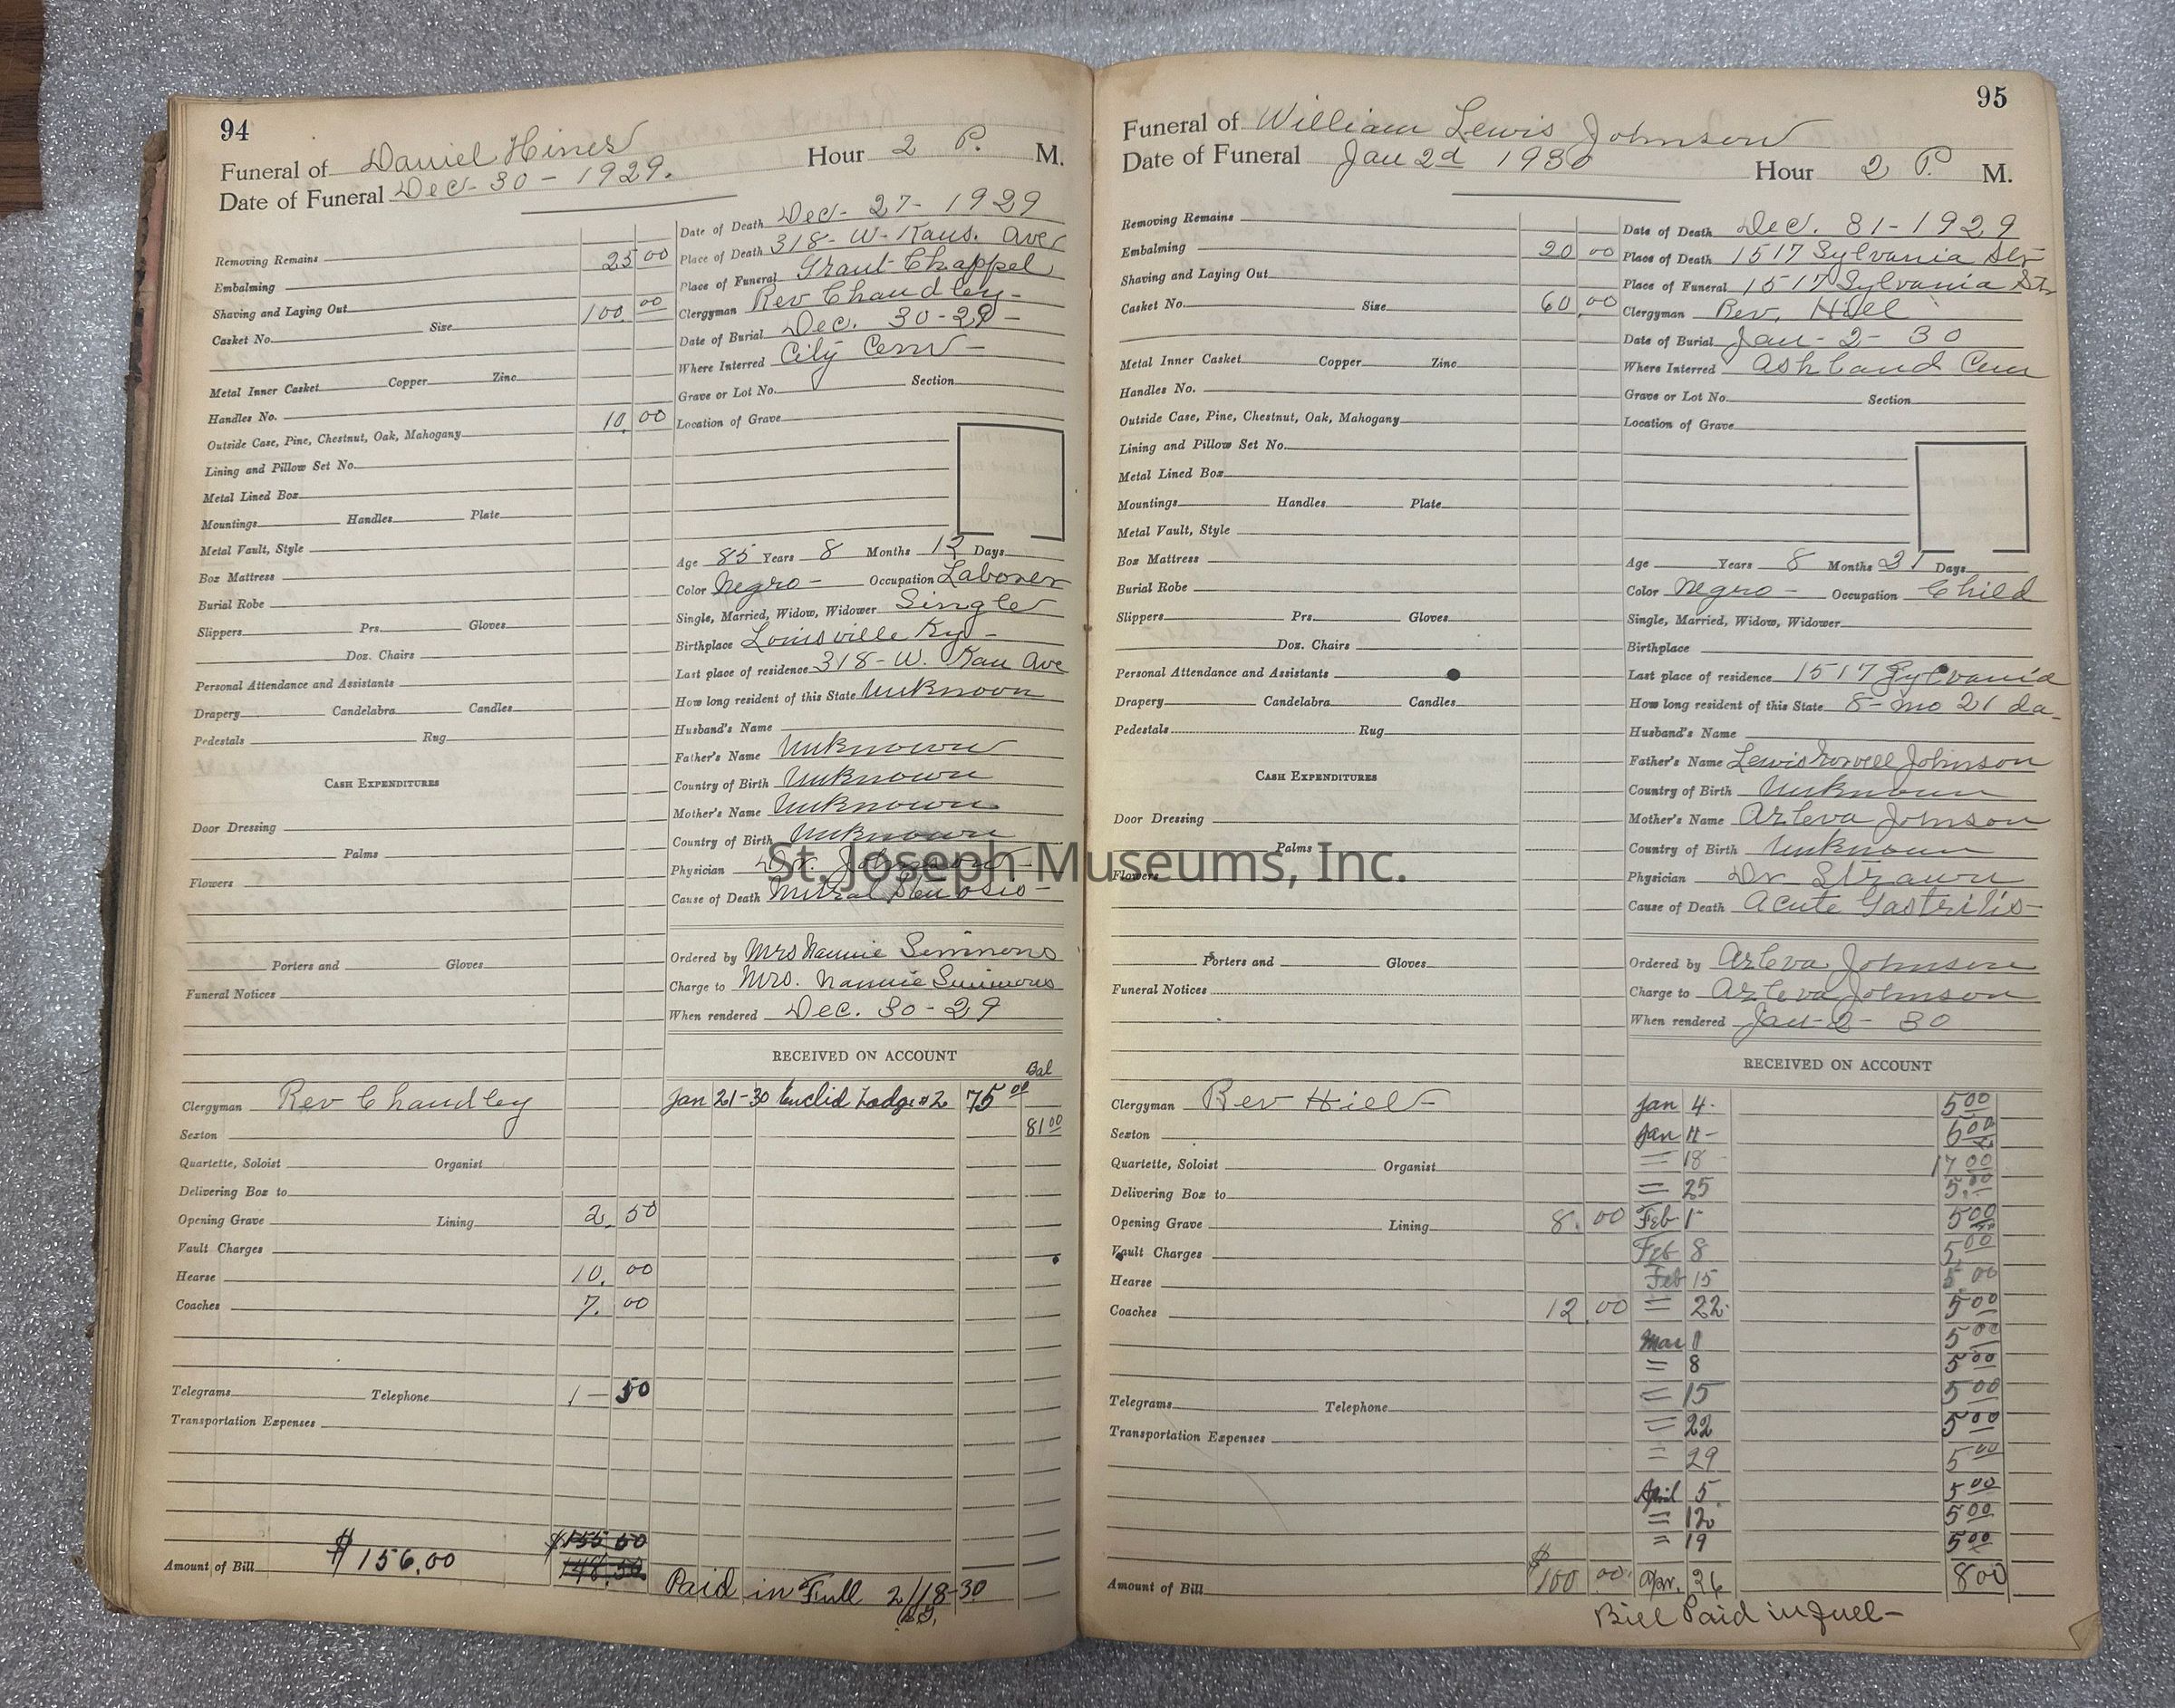 94
Funeral of Daniel Hines Hour 2 P. M.
Date of Funeral Dec-30-1929.
Removing Remains 25 00
Embalming
Shaving and Laying Out 100 00
Casket No. Size
Metal Inner Casket Copper Zinc
Handles No. 10. 00
Outside Case, Pine, Chestnut, Oak, Mahogany
Lining and Pillow Set No.
Metal Lined Box
Mountings Handles Plate
Metal Vault, Style
Box Mattress
Burial Robe
Slippers Prs. Gloves
Doz. Chairs
Personal Attendance and Assistants
Drapery Candelabra Candles
Pedestals Rug
CASH EXPENDITURES
Door Dressing
Palms
Flowers
Porters and Gloves
Funeral Notices
Clergyman Rev Chandley
Sexton
Quartette, Soloist Organist
Delivering Box to
Opening Grave Lining 2. 50
Vault Charges
Hearse 10. 00
Coaches 7. 00
Telegrams Telephone 1 - 50
Transportation Expenses
$155 50
148.50
Amount of Bill $156.00
Date of Death Dec-27-1929
Place of Death 318-W-Kans. Ave
Place of Funeral Grant Chappel
Clergyman Rev Chandley-
Date of Burial Dec. 30-29-
Where Interred City Cem-
Grave or Lot No. Section
Location of Grave
Age 85 Years 8 Months 12 Days
Color Negro- Occupation Laborer
Single, Married, Widow, Widower Single
Birthplace Louisville Ky-
Last place of residence 318-W. Kan Ave
How long resident of this State Unknoon
Husband's Name
Father's Name Unknown
Country of Birth Unknown
Mother's Name Unknown
Country of Birth Unknown
Physician Dr.
Cause of Death Mitral Stenosis-
Ordered by Mrs Nannie Simmons
Charge to Mrs. Nannie Simmons
When rendered Dec. 30-29
RECEIVED ON ACCOUNT
Bal
Jan 21-30 Euclid Lodge #2 75 00
81 00
Paid in Full 2/18-30
95
Funeral of William Lewis Johnson
Date of Funeral Jan 2d 1930 Hour 2 P. M.
Removing Remains
Embalming 20 00
Shaving and Laying Out
Casket No. Size 60 00
Metal Inner Casket Copper Zinc
Handles No.
Outside Case, Pine, Chestnut, Oak, Mahogany
Lining and Pillow Set No.
Metal Lined Box
Mountings Handles Plate
Metal Vault, Style
Box Mattress
Burial Robe
Slippers Prs. Gloves
Doz. Chairs
Personal Attendance and Assistants
Drapery Candelabra Candles
Pedestals Rug
CASH EXPENDITURES
Door Dressing
Palms
Flowers
Porters and Gloves
Funeral Notices
Clergyman Rev Hill-
Sexton
Quartette, Soloist Organist
Delivering Box to
Opening Grave Lining 8. 00
Vault Charges
Hearse
Coaches 12 00
Telegrams Telephone
Transportation Expenses
Amount of Bill $100 00
Date of Death Dec. 31-1929
Place of Death 1517 Sylvania Str
Place of Funeral 1517 Sylvania Str
Clergyman Rev. Hill
Date of Burial Jan-2-30
Where Interred Ashland Cem
Grave or Lot No. Section
Location of Grave
Age Years 8 Months 21 Days
Color Negro- Occupation Child
Single, Married, Widow, Widower
Birthplace
Last place of residence 1517 Sylvania
How long resident of this State 8-mo 21 da-
Husband's Name
Father's Name Lewis Johnson
Country of Birth Unknown
Mother's Name Arleva Johnson
Country of Birth Unknown
Physician Dr Strawn
Cause of Death Acute Gastritis-
Ordered by Arleva Johnson
Charge to Arleva Johnson
When rendered Jan-2-30
RECEIVED ON ACCOUNT
Jan 4. 5 00
Jan 11-
= 18 - 17 00
= 25 5.00
Feb 1 5 00
Feb 8 5 00
Feb 15 5 00
= 22. 5 00
Mar 1 5 00
= 8 5 00
= 15 5 00
= 22 5 00
= 29 5 00
April 5 5 00
= 12 5 00
= 19 5 00
Apr. 26 8 00
Bill Paid in full-
St. Joseph Museums, Inc.